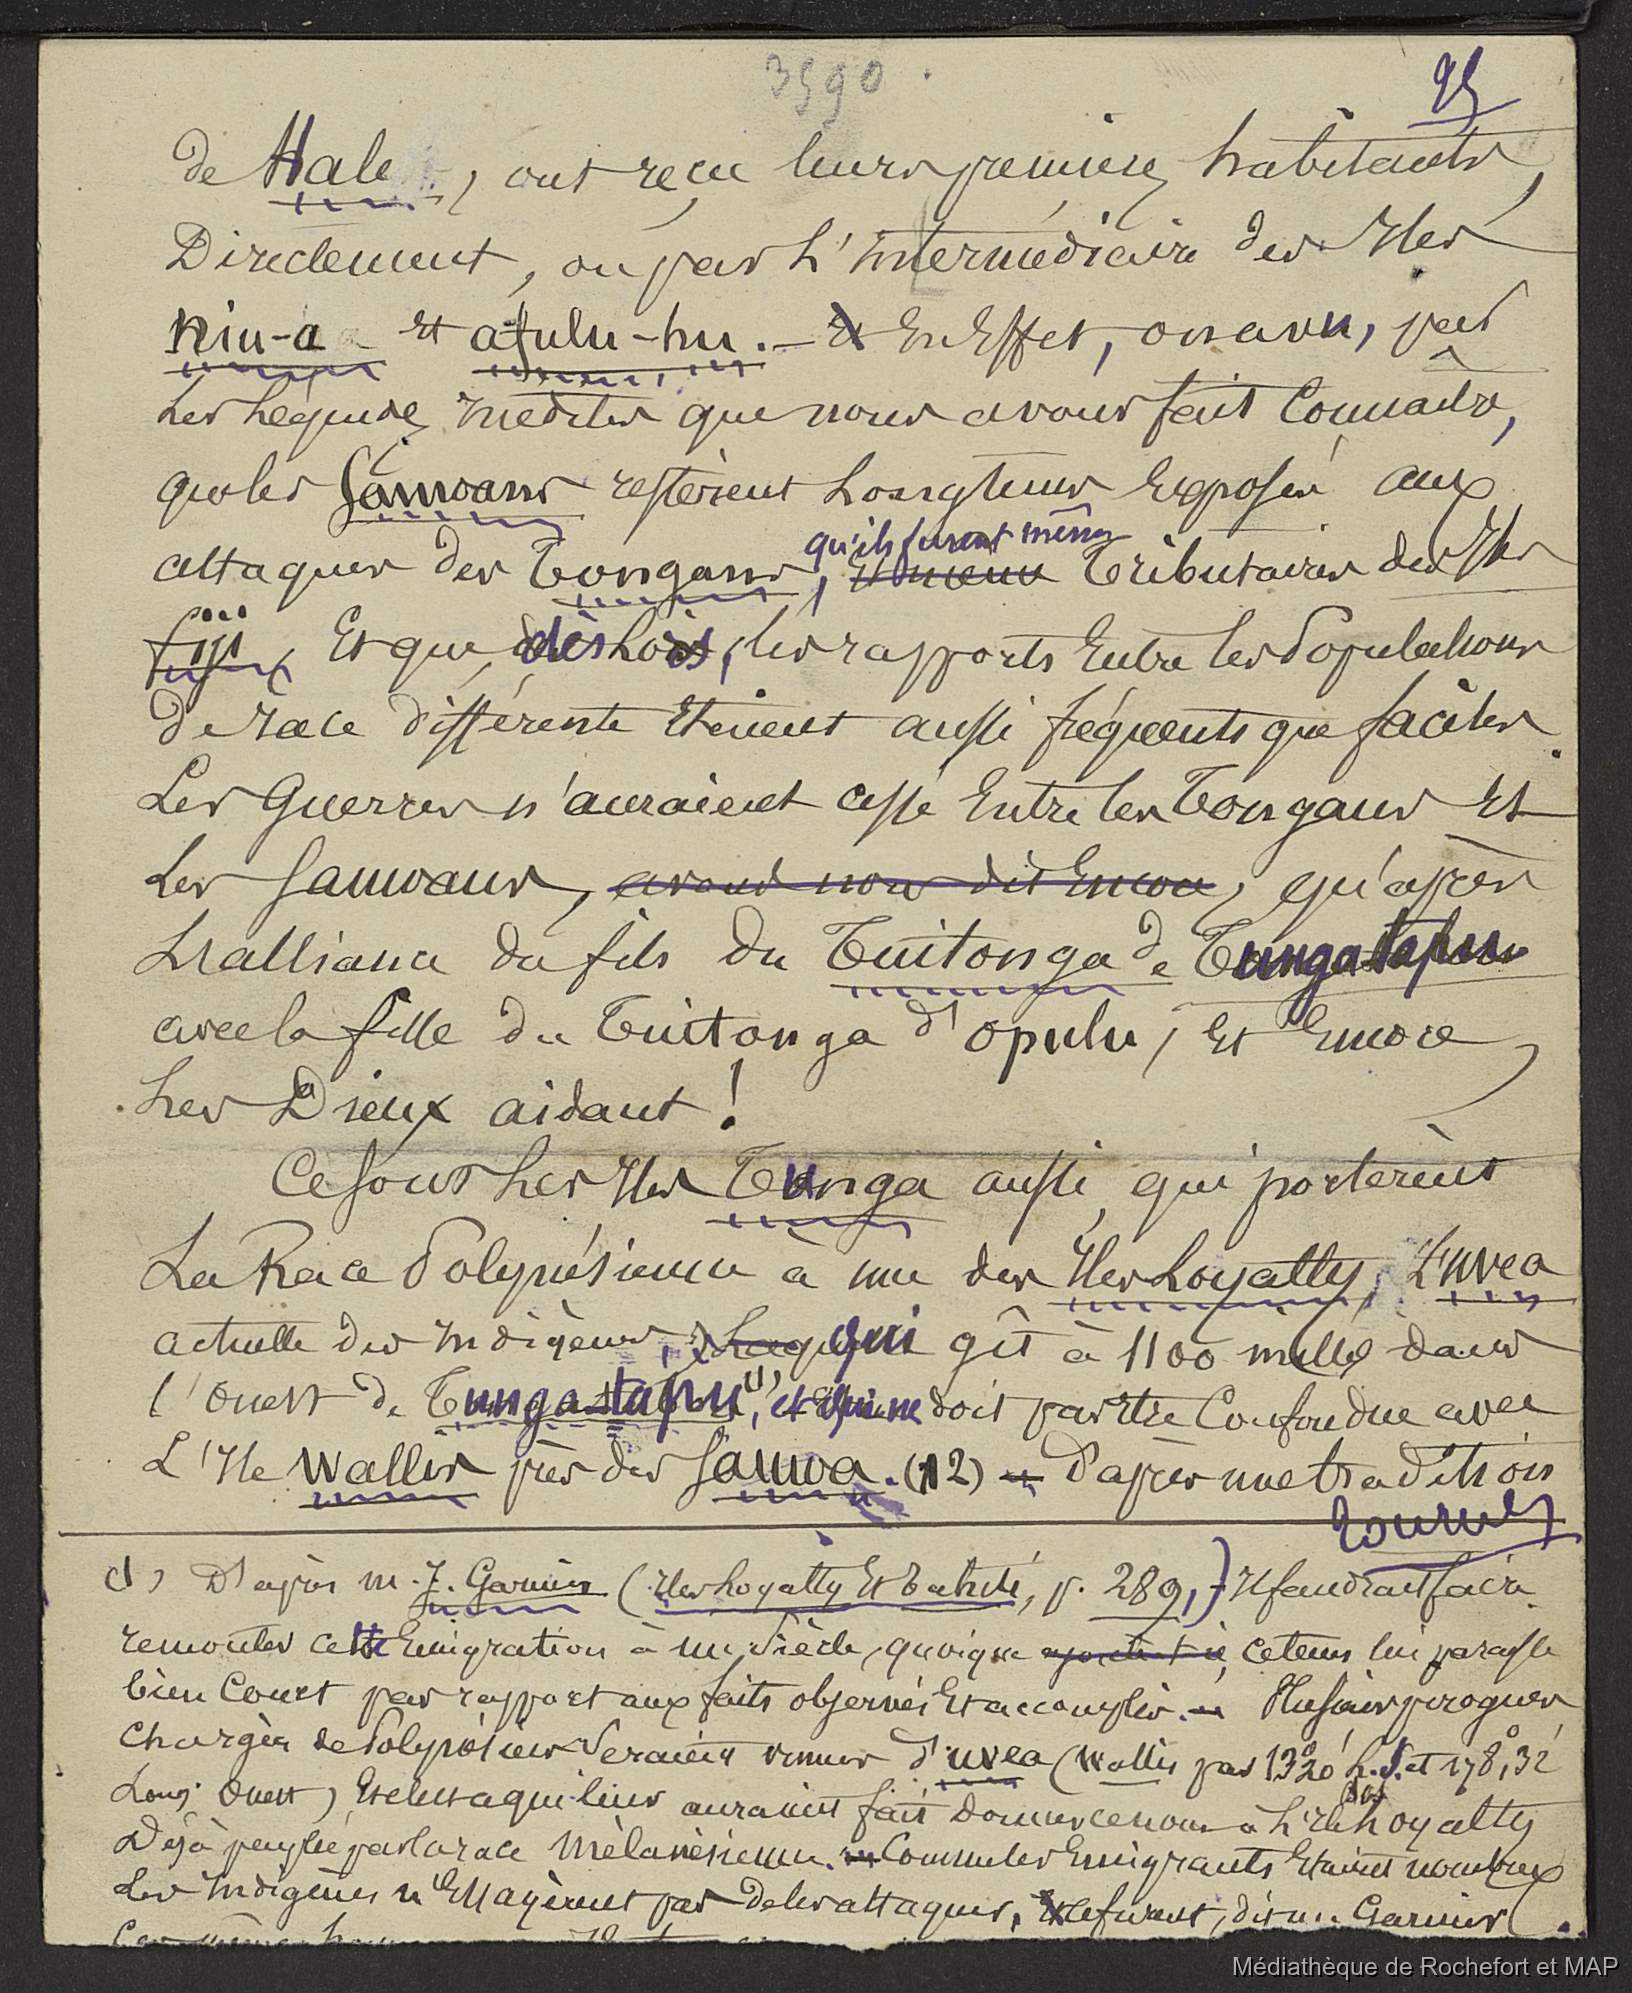 3590
95
de Hale, ont reçu leurs premiers habitants,
Directement, ou par L'Intermédiaire des Iles
Niu-a et afulu-hu. — Et En Effet, on a vu, par
Les Légendes inédites que nous avons fait Connaître,
que les Samoans restèrent Longtems Exposés aux
attaques des Tongans, qu'ils furent même Et même Tributaires des Iles
fiji, Et que, dès Lors, les rapports Entre les Populations
de race différente Etaient aussi fréquents que faciles.
Les Guerres n'auraient cessé Entre les Tongans Et
Les Samoans, avons nous dit Encore, qu'après
L'alliance du fils du Tuitonga de Tungatapu
avec la fille du Tuitonga d'opulu, Et Encore
Les Dieux aidant!
Ce sont Les Iles Tunga aussi, qui portèrent
La Race Polynésienne à une des Iles Loyalty, L'uvea
actuelle des Indigènes, Laquelle qui gît à 1100 milles dans
l'Ouest de Tunga-tapu (1), et qui ne doit pas être Confondue avec
L'Ile Wallis près des Samoa. (12) — D'après une tradition
tournez
(1) D'après M. J. Garnier (Iles Loyalty Et Tahiti, p. 289,) Il faudrait faire
remonter cette Emigration à un Siècle, quoique ajoute-t-il, ce tems lui paraisse
bien Court par rapport aux faits observés Et accomplis. — Plusieurs pirogues
chargées de Polynésiens Seraient venues d'uvea (Wallis par 13°20' L. S. et 178°,32'
Long. Ouest) Et c'est ce qui leur aurait fait Donner ce nom à L'Ile Loyalty
Déjà peuplée par la race Mélanésienne. — Comme les Emigrants Etaient nombreux
Les Indigènes n'Essayèrent pas de les attaquer, Et ce furent, dit M. Garnier